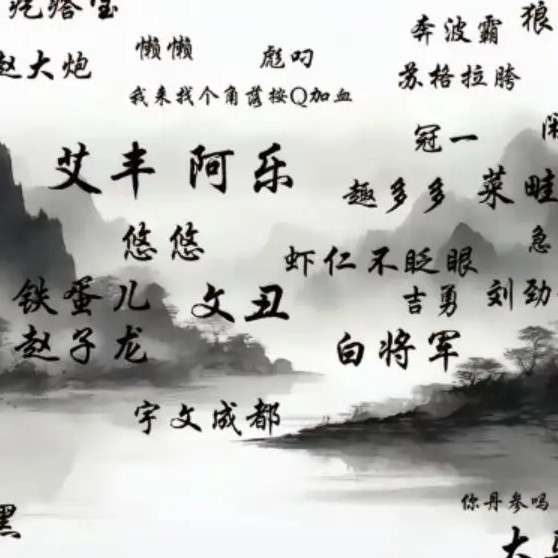 懒懒
奔波霸
赵大炮
彪叼
苏格拉胯
我来找个角落按Q加血
冠一
艾丰
阿乐
趣多多
菜畦
悠悠
急
虾仁不眨眼
铁蛋儿
文丑
吉勇
刘劲
赵子龙
白将军
宇文成都
你丹参吗